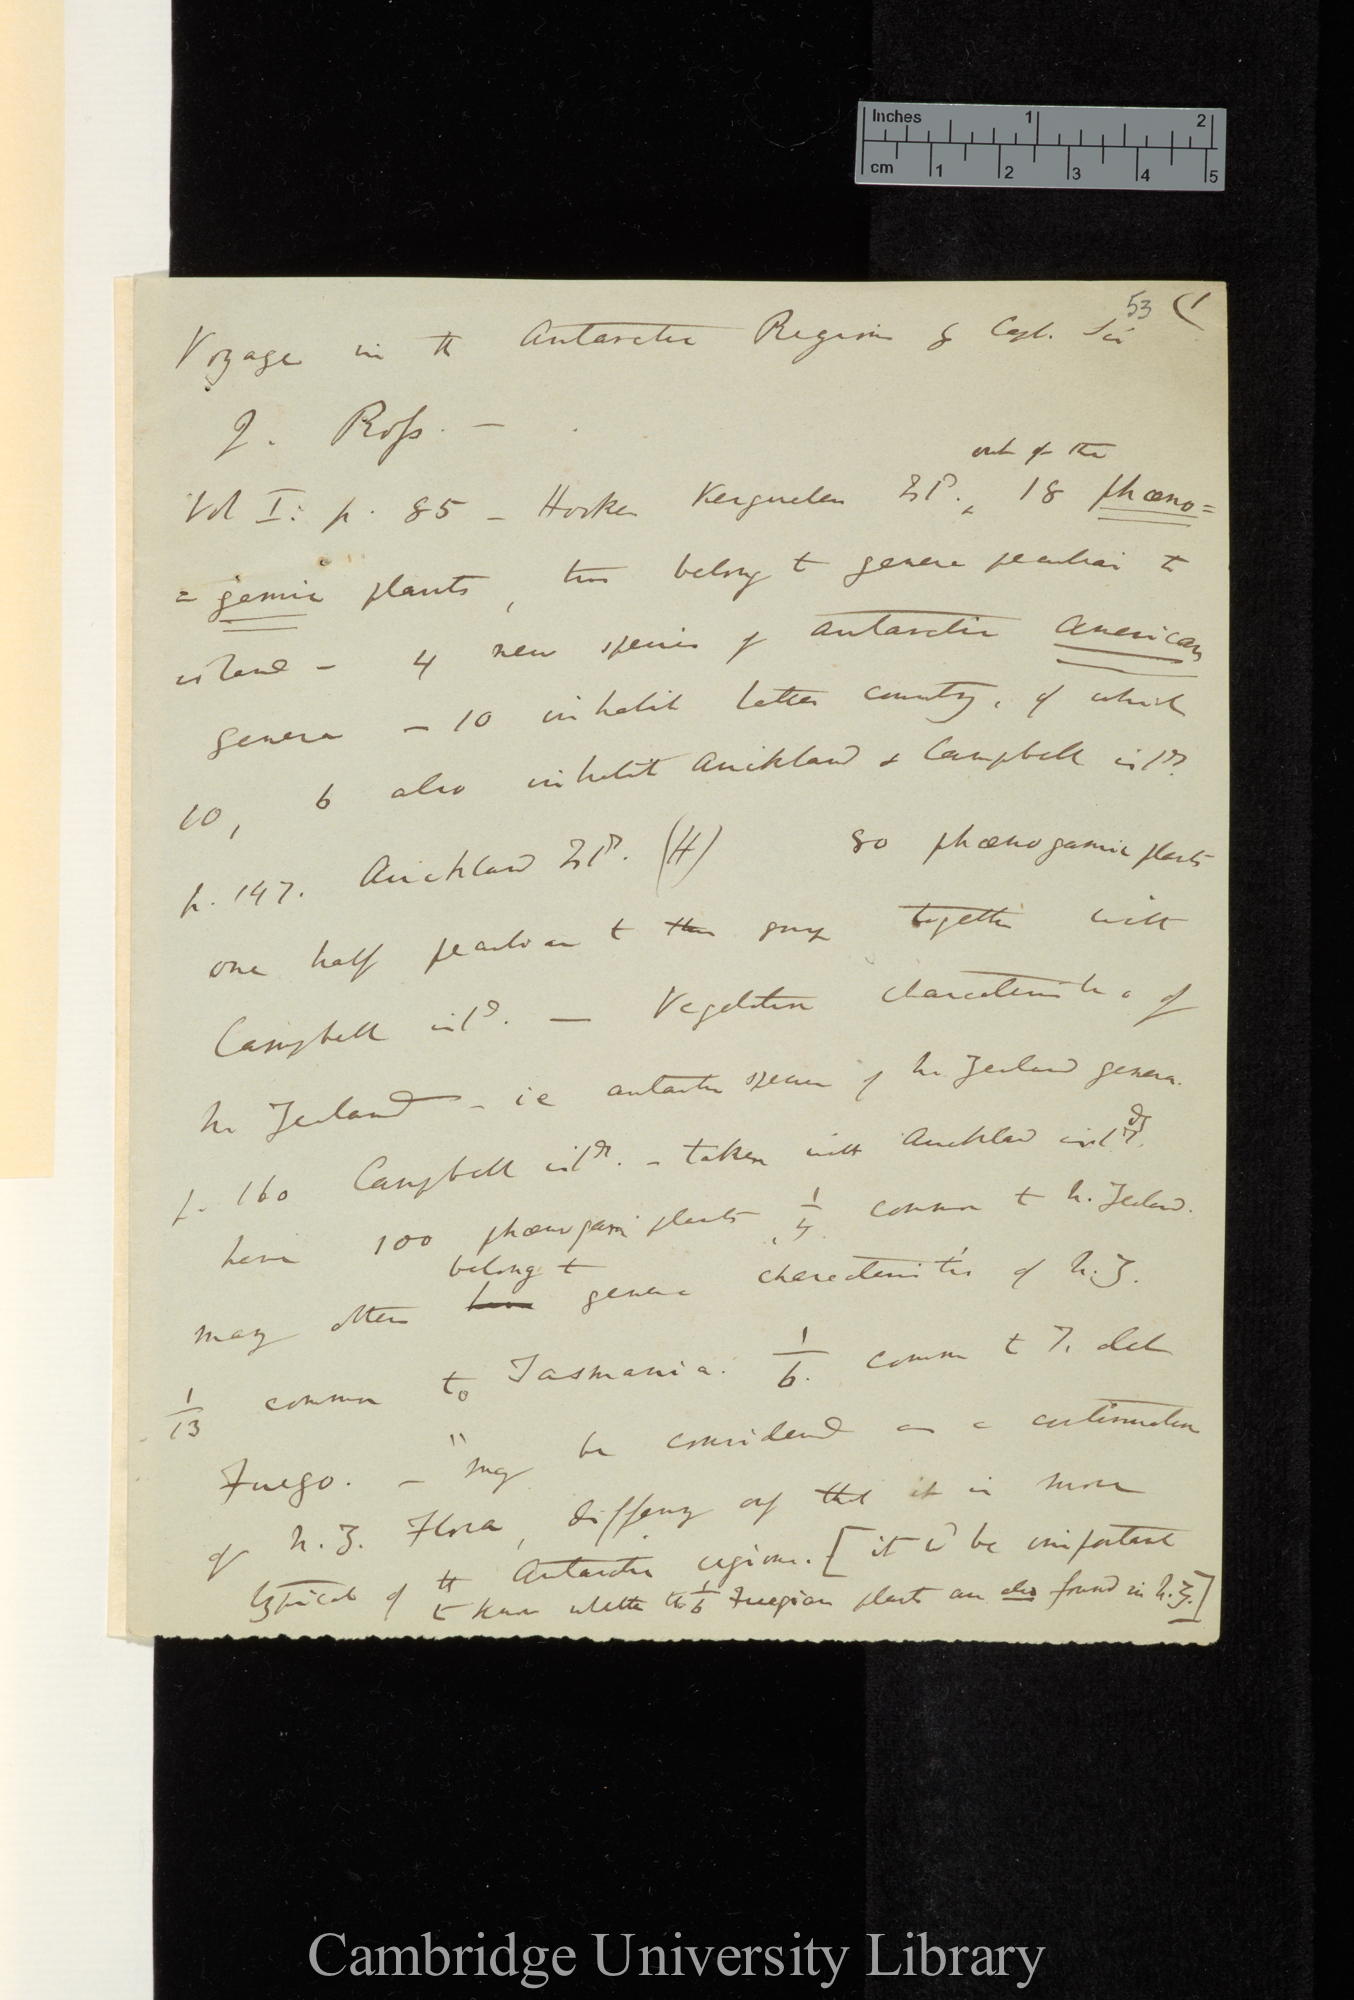 Inches 1 2
cm 1 2 3 4 5
53 (1
Voyage in the Antarctic Regions by Capt. Sir
J. Ross. —
out of the
Vol I: p. 85 — Hooker Kerguelen Isd., 18 phæno=
=gamic plants, two belong to genera peculiar to
island — 4 new species of antarctic American
genera — 10 inhabit latter country, of which
10, 6 also inhabit Auckland & Campbell isds
p. 147. Auckland Isds. (H) 80 phænogamic plants
one half peculiar to this group together with
Campbell isds. — Vegetation characteristic of
N. Zealand — ie antarctic species of N. Zealand genera.
p. 160 Campbell isds. — taken with Auckland isds.
have 100 phænogamic plants, 1/4 common to N. Zealand.
belong to
many others have genera characteristic of N.Z.
1/13 common to Tasmania. 1/6. common to T. del
Fuego. — "may be considered as a continuation
of N.Z. Flora, differing only that it is more
typical of the Antarctic regions. [it wd be important
to know whether the 1/6 Fuegian plants are also found in N.Z.]
Cambridge University Library